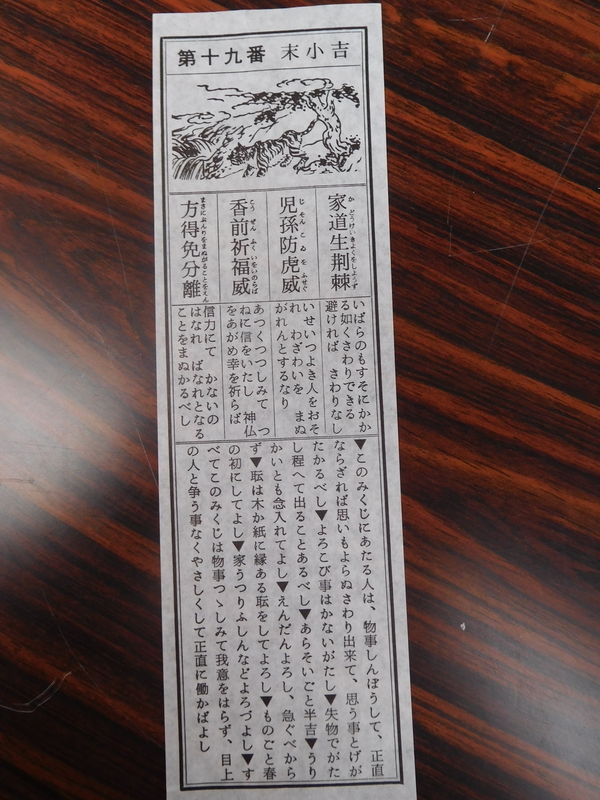 第十九番 末小吉
家道生荊棘
かどうけいきよくをしようず
児孫防虎威
じそんこゐをふせぐ
香前祈福威
こうぜんふくいをいのらば
方得免分離
まさにぶんりをまぬがることをえん
いばらのもすそにかか
る如くさわりできる
避ければ さわりなし
いせいつよき人をおそ
れ わざわいを まぬ
がれんとするなり
あつくつつしみて つ
ねに信をいたし 神仏
をあがめ幸を祈らば
信力にて かないの
はなれ ばなれとなる
ことをまぬかるべし
▼このみくじにあたる人は、物事しんぼうして、正直
ならざれば思いもよらぬさわり出来て、思う事とげが
たかるべし▼よろこび事はかないがたし▼失物でがた
し程へて出ることあるべし▼あらそいごと半吉▼うり
かいとも念入れてよし▼えんだんよろし、急ぐべから
ず▼転は木か紙に縁ある転をしてよろし▼ものごと春
の初にしてよし▼家うつりふしんなどよろづよし▼す
べてこのみくじは物事つゝしみて我意をはらず、目上
の人と争う事なくやさしくして正直に働かばよし